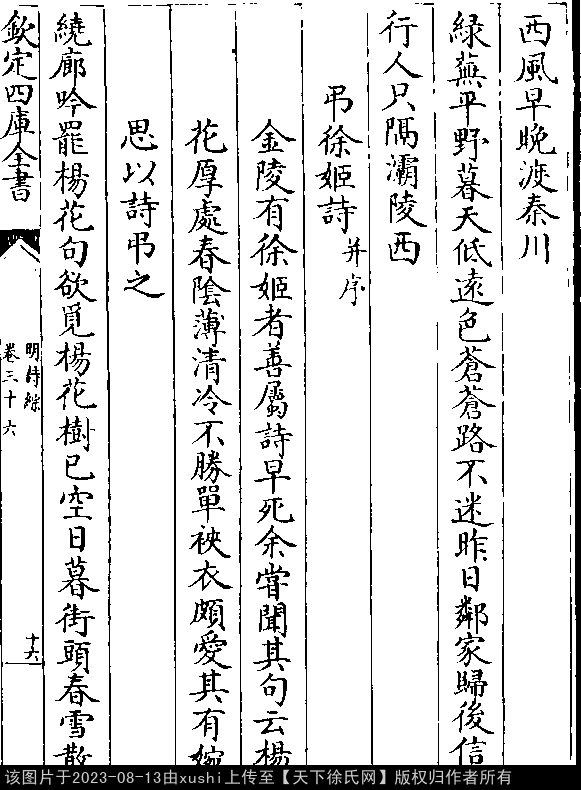 西風早晚渡秦川
緑蕪平野暮天低遠色蒼蒼路不迷昨日鄰家歸後信
行人只隔灞陵西
弔徐姬詩并序
金陵有徐姬者善屬詩早死余嘗聞其句云楊
花厚處春陰薄清冷不勝單裌衣頗愛其有婉
思以詩弔之
繞廊吟罷楊花句欲覓楊花樹已空日暮街頭春雪散
欽定四庫全書
明詩綜
卷三十六
十六
该图片于2023-08-13由xushi上传至【天下徐氏网】版权归作者所有